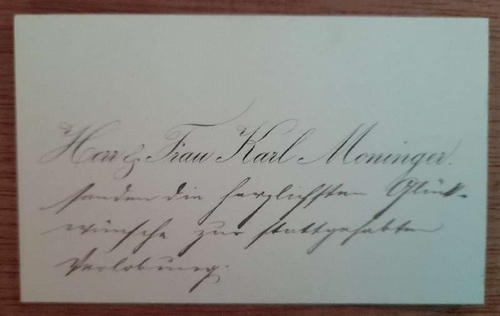 Herr & Frau Karl Moninger.
senden die herzlichsten Glück-
wünsche zur stattgehabten
Verlobung.